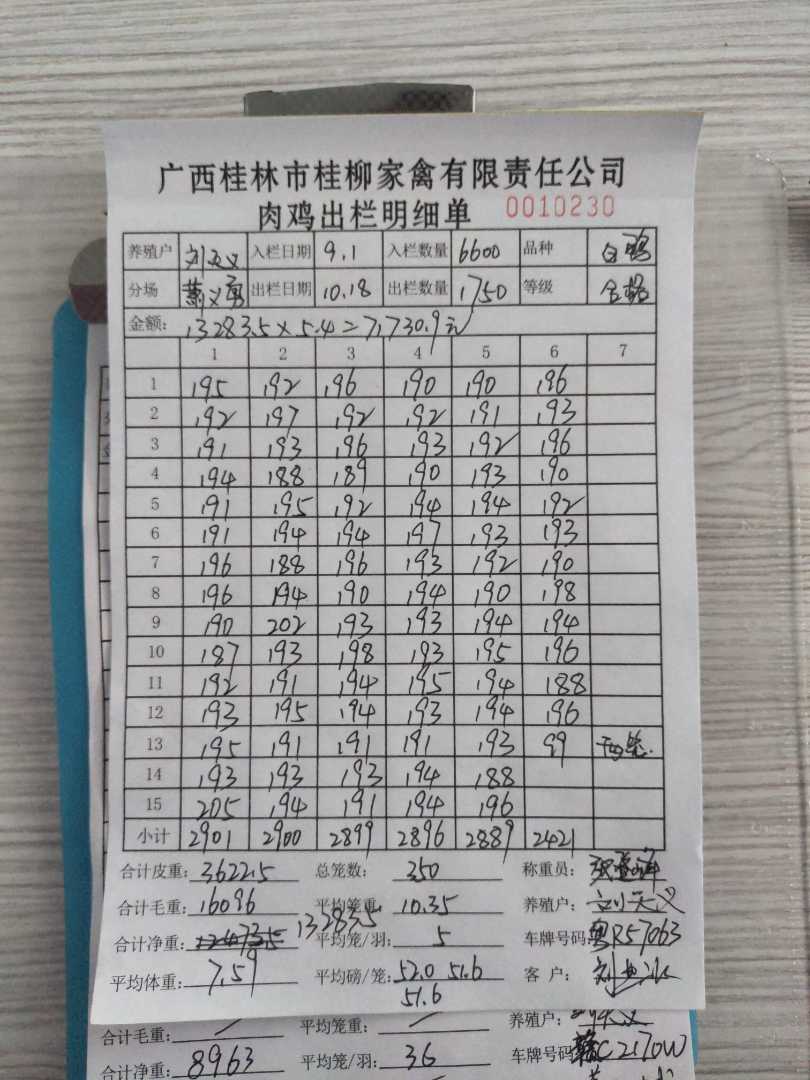 广西桂林市桂柳家禽有限责任公司
肉鸡出栏明细单 0010230
养殖户 刘天义 入栏日期 9.1 入栏数量 6600 品种
分场 萧义勇 出栏日期 10.18 出栏数量 1750 等级 合格
金额: 13283.5×5.4=71730.9元
1 2 3 4 5 6 7
1 195 192 196 190 190 196
2 192 197 192 192 191 193
3 191 193 196 193 192 196
4 194 188 189 190 193 190
5 191 195 192 194 194 192
6 191 194 194 197 193 193
7 196 188 196 193 192 190
8 196 194 190 194 190 198
9 190 202 193 193 194 194
10 187 193 198 193 195 196
11 192 191 194 195 194 188
12 193 195 194 193 194 196
13 195 191 191 191 193 99 两笼.
14 193 193 193 194 188
15 205 194 191 194 196
小计 2901 2900 2899 2896 2889 2421
合计皮重: 3622.5 总笼数: 350 称重员:
合计毛重: 16096 平均笼重: 10.35 养殖户: 刘天义
合计净重: 13283.5 平均笼/羽: 5 车牌号码: 粤R57063
平均体重: 7.59 平均磅/笼: 52.0 51.6 客户:
51.6
合计毛重: 平均笼重: 养殖户:
合计净重: 8963 平均笼/羽: 36 车牌号码: 赣C2170W